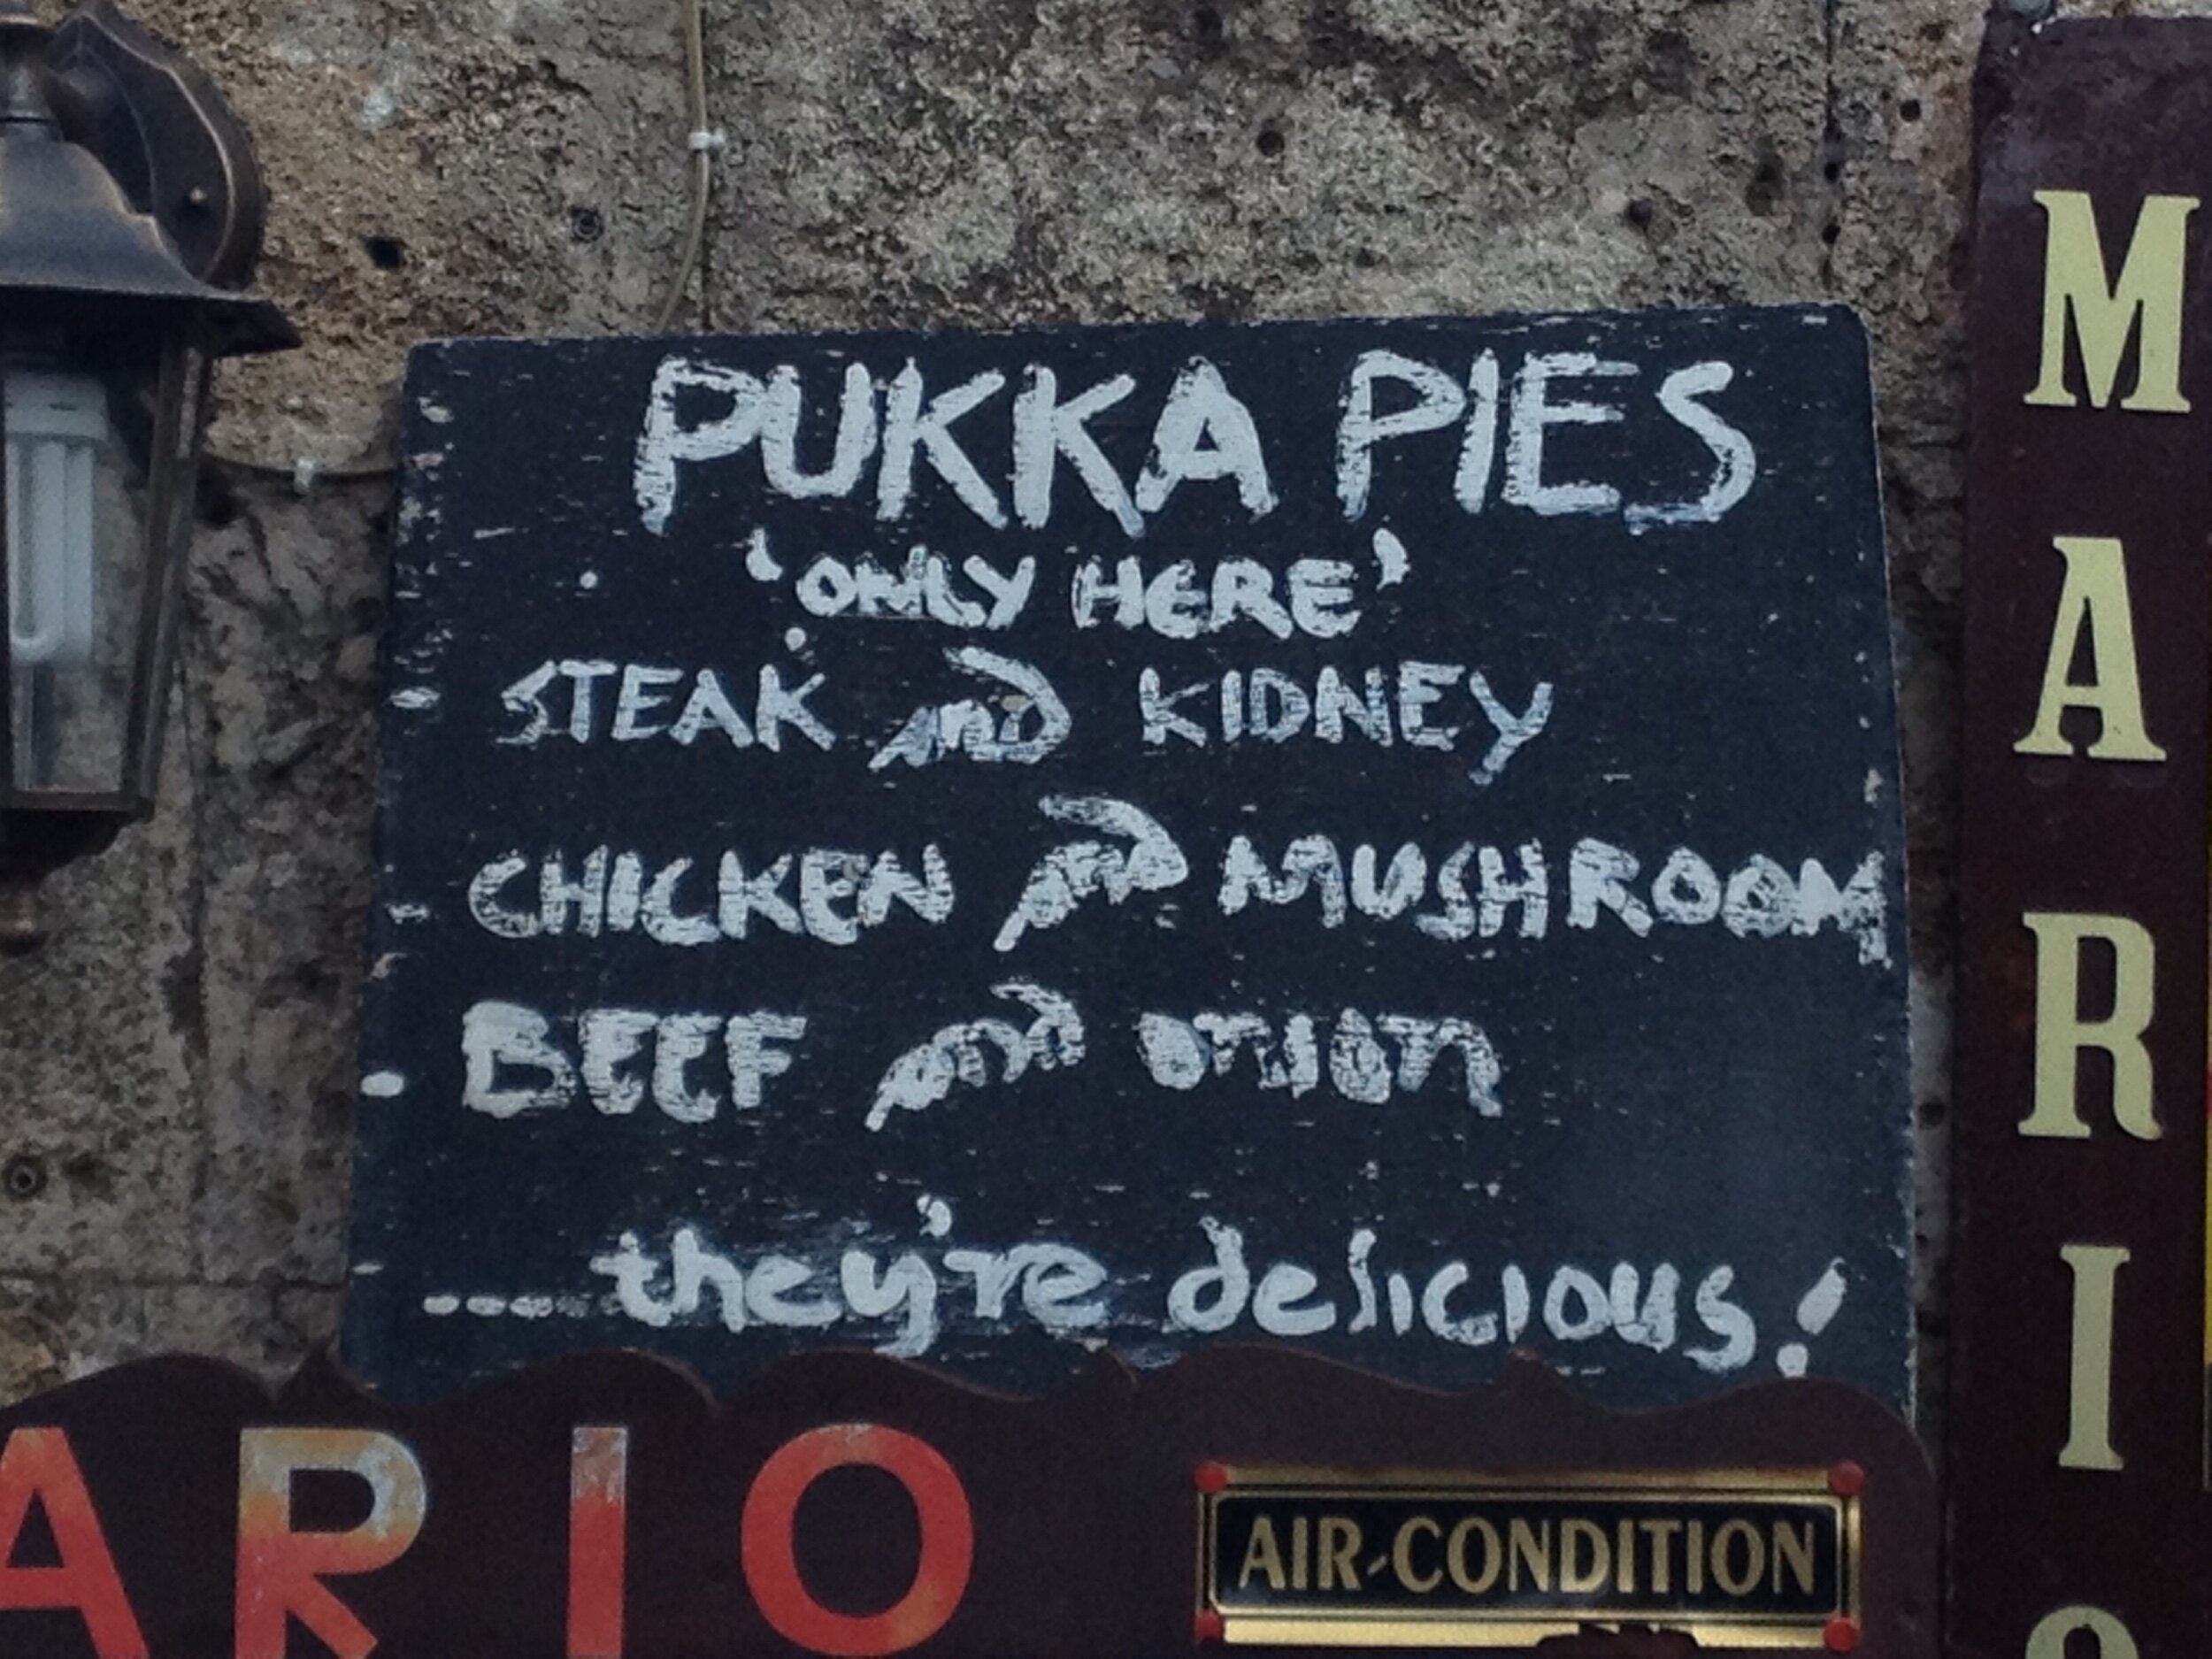 PUKKA PIES
'ONLY HERE'
STEAK and KIDNEY
CHICKEN and MUSHROOM
BEEF and ONION
.... they're delicious!
ARIO
AIR-CONDITION
MARIO